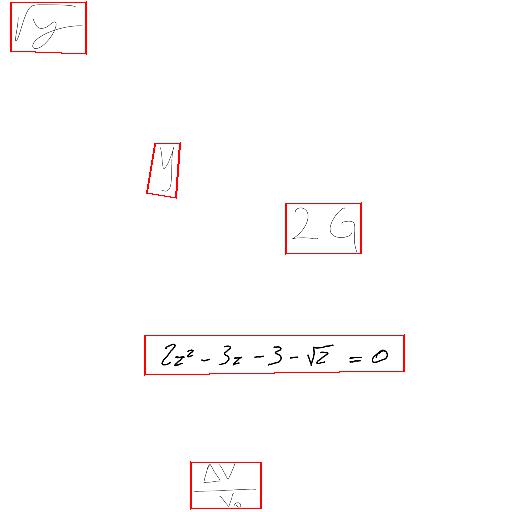 √y
y
2 G
2z² - 3z - 3 - √z = 0
ΔV/V₀